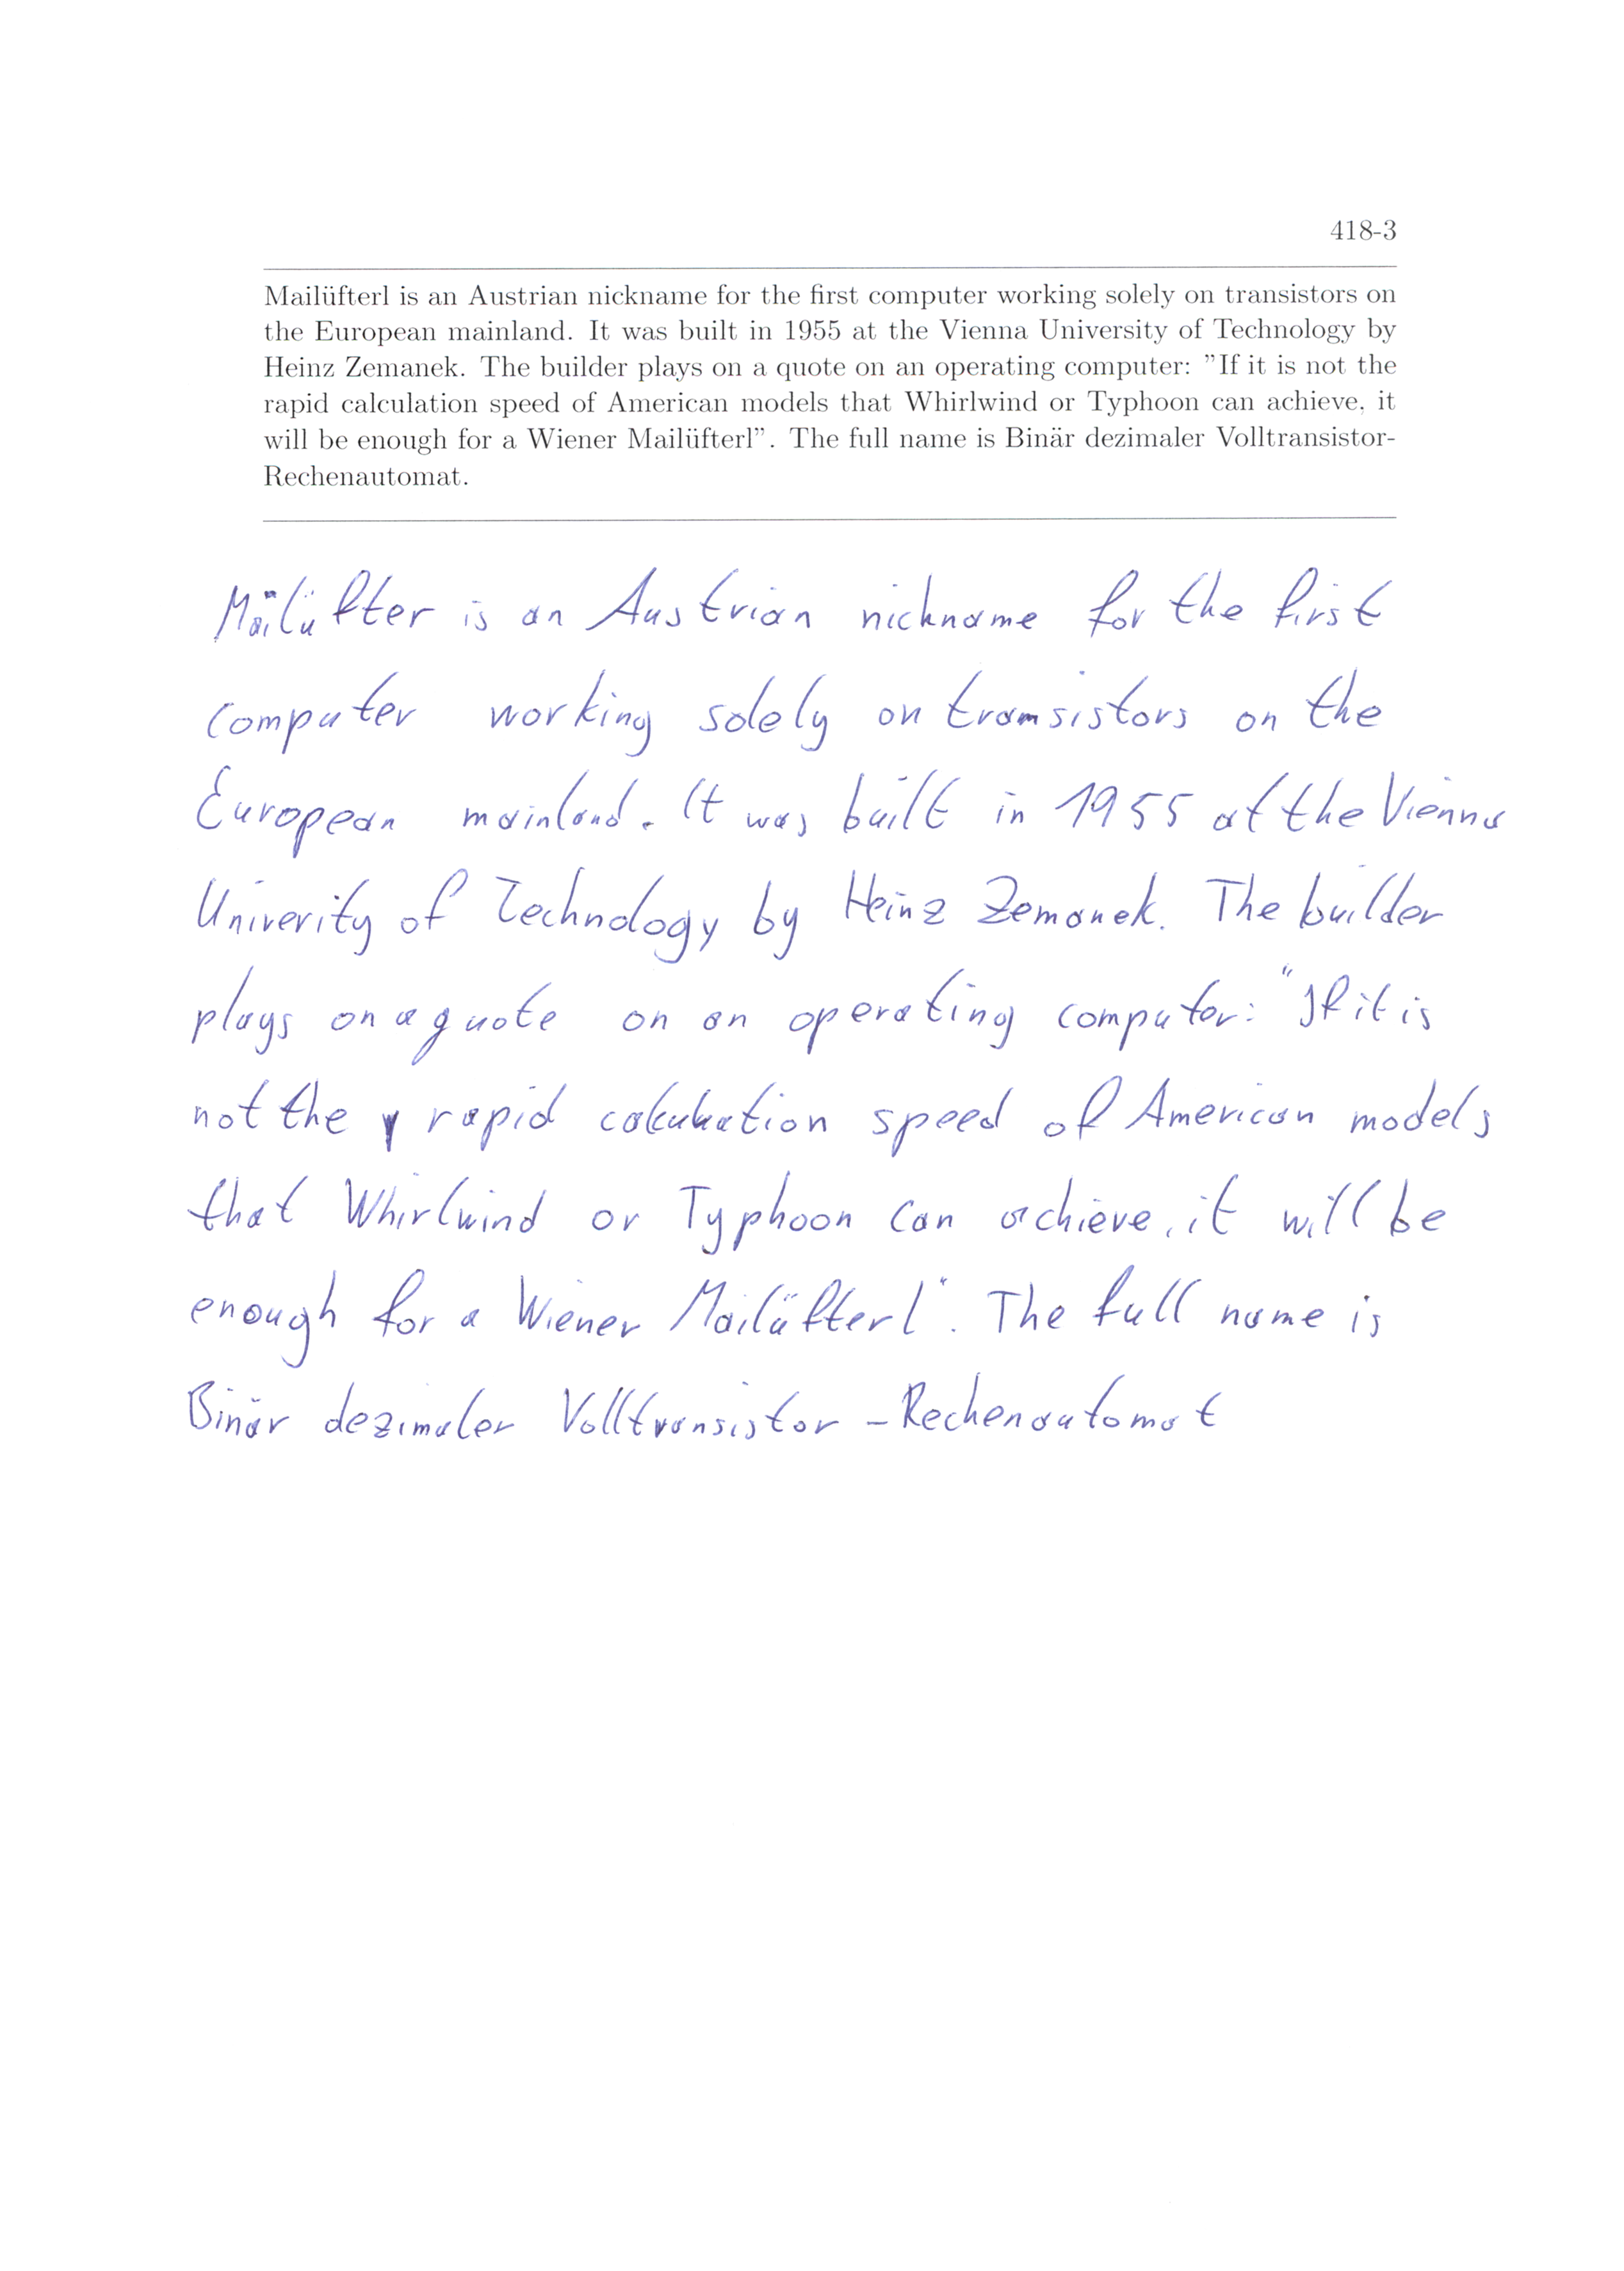 418-3
Mailüfterl is an Austrian nickname for the first computer working solely on transistors on
the European mainland. It was built in 1955 at the Vienna University of Technology by
Heinz Zemanek. The builder plays on a quote on an operating computer: "If it is not the
rapid calculation speed of American models that Whirlwind or Typhoon can achieve, it
will be enough for a Wiener Mailüfterl". The full name is Binär dezimaler Volltransistor-
Rechenautomat.
Mailüfter is an Austrian nickname for the first
computer working solely on tramsistors on the
European mainland. It was built in 1955 at the Vienna
Univerity of Technology by Heinz Zemanek. The builder
plays on a quote on an operating computer: "If it is
not the rapid calculation speed of American models
that Whirlwind or Typhoon can achieve, it will be
enough for a Wiener Mailüfterl". The full name is
Binär dezimaler Volltransistor-Rechenautomat